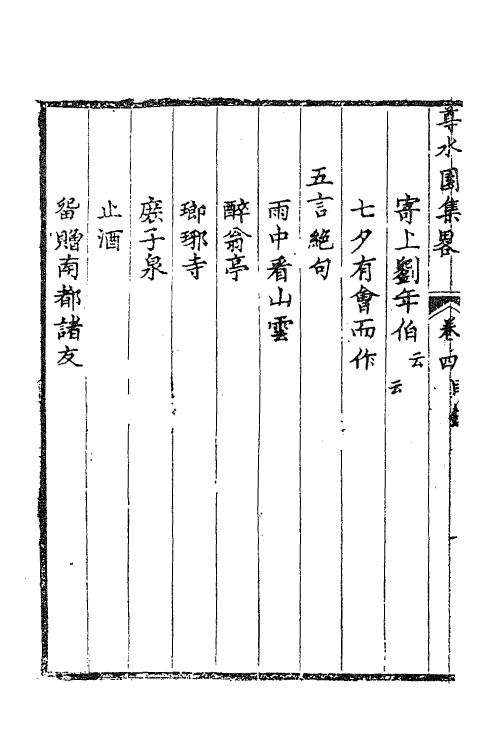 尊水園集畧 卷四目
寄上劉年伯云云
七夕有會而作
五言絕句
雨中看山雲
醉翁亭
瑯琊寺
庶子泉
止酒
畱贈南都諸友